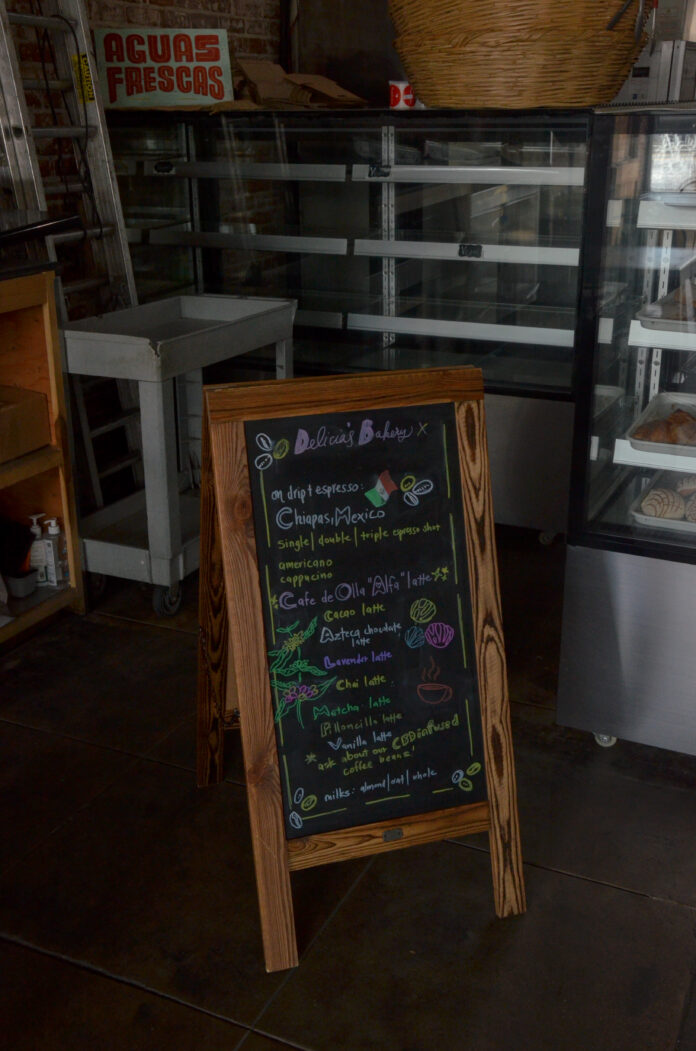 AGUAS
FRESCAS
Delicia's Bakery
on drip + espresso:
Chiapas, Mexico
single / double / triple espresso shot
americano
cappucino
Cafe de Olla "Alfa" latte
Cacao latte
Azteca chocolate
latte
Lavender latte
Chai latte
Matcha latte
Piloncillo latte
Vanilla latte
* ask about our CBD infused
coffee beans!
milks: almond/oat/whole